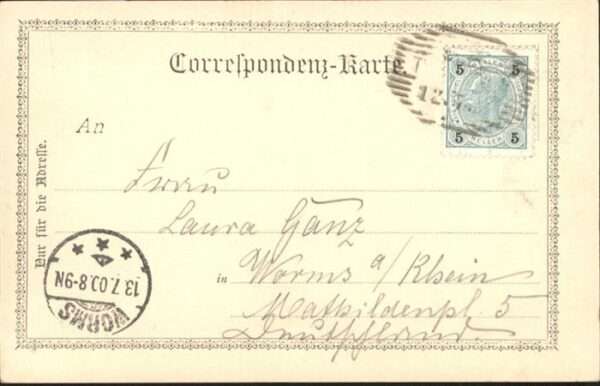 Correspondenz-Karte.
5 5
5 HELLER 5
12.
An
Nur für die Adresse.
Frau
Laura Ganz
in Worms a/Rhein
Mathildenpl. 5
Deutschland.
WORMS
13.7.00.8-9N